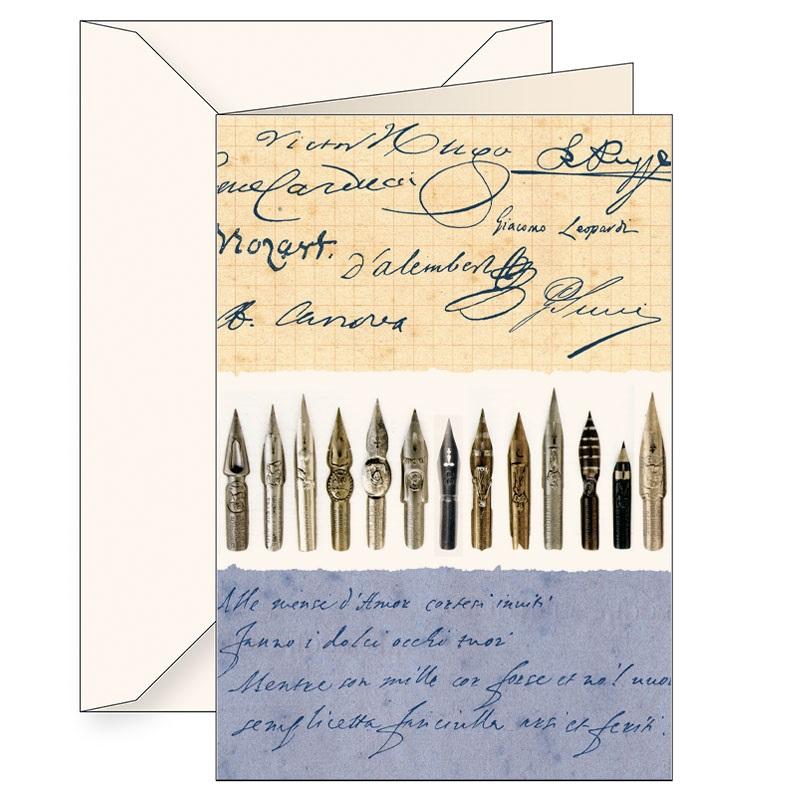 Victor Hugo
Carducci
Mozart.
Giacomo Leopardi
d'alembert
A. Canova
Alle mense d'Amor cortesi inviti
fanno i dolci occhi tuoi
Mentre son mille cor forse et no'l vuoi
semplicetta fanciulla arsi et feriti.